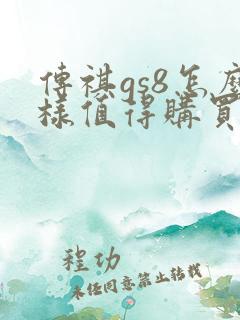 傳祺gs8怎麼
樣值得購買
程功
未經同意禁止轉載